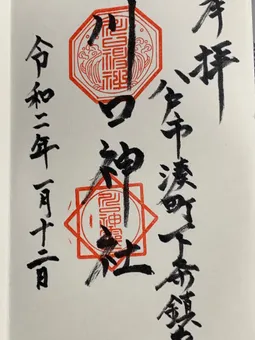 奉拝
八戸市湊町下条鎮守
川口神社
令和二年一月十二日